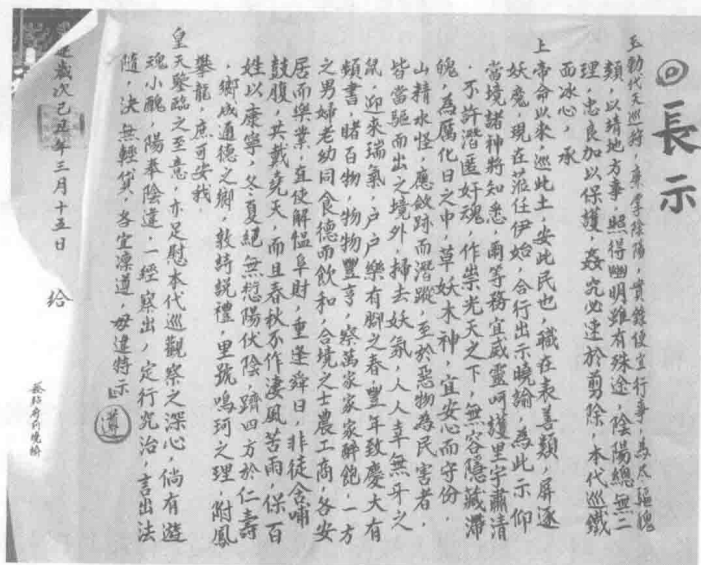 長示
玉勅代天巡狩,秉掌陰陽,賞錄便宜行事,為尽驅魄
類,以靖地方事,照得幽明雖有殊途,陰陽總無二
理,忠良加以保護,姦宄必速於剪除,本代巡鐵
面冰心,承
上帝命以來,巡此土,安此民也,職在表善類,屏逐
妖魔,現在蒞任伊始,合行出示曉諭,為此示仰
當境諸神將知悉,爾等務宜威靈呵護里宇肅清
,不許潛匿奸魂,作祟光天之下,無容隱藏滯
魄,為厲化日之中,草妖木神,宜安心而守份,
山精水怪,應歛跡而潛蹤,至於惡物為民害者,
皆當驅而出之境外,掃去妖氛,人人幸無牙之
鼠,迎來瑞氣,戶戶樂有腳之春,豐年致慶大有
頻書,睹百物,物物豐亨,察萬家家家醉飽,一方
之男婦老幼同食德而飲和,合境之士農工商,各安
居而樂業,直使解慍阜財,重逢舜日,非徒含哺
鼓腹,共戴堯天,而且春秋不作淒風苦雨,保百
姓以康寧,冬夏絕無愆陽伏陰,躋四方於仁壽
,鄉成通德之鄉,敦詩說禮,里號鳴珂之理,附鳳
攀龍,庶可安我,
皇天鑒臨之至意,亦足慰本代巡觀察之深心,倘有遊
魂小醜,陽奉陰違,一經察出,定行究治,言出法
隨,決無輕貸,各宜凜遵,毋違特示
遵
歲次己丑年三月十五日
給
發貼府前曉諭